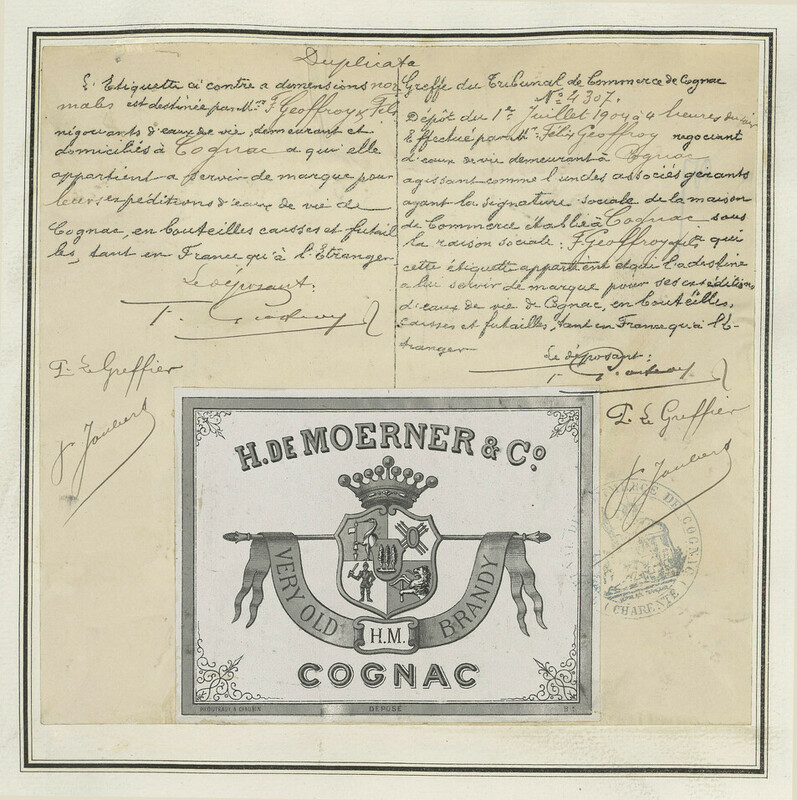 Duplicata
L'Etiquette ci contre a dimensions nor
males est destinée par M.rs F. Geoffroy & Fils
négociants d'eaux de vie, demeurant et
domiciliés à Cognac a qui elle
appartient a servir de marque pour
leurs expéditions d'eaux de vie de
Cognac, en bouteilles caisses et futail
les, tant en France qu'à l'Etranger
Le déposant:
P. Le Greffier
J. Joubert
Greffe du Tribunal de Commerce de Cognac
No. 4307.
Dépôt du 1er Juillet 1904 à 4 heures du soir
Effectué par M. Felix Geoffroy négociant
d'eaux de vie demeurant à Cognac
agissant comme l'un des associés gérants
ayant la signature sociale de la maison
de Commerce établie à Cognac sous
la raison sociale: F. Geoffroy & fils, a qui
cette étiquette appartient et qui l'a destine
a lui servir de marque pour ses expéditions
d'eaux de vie de Cognac, en bouteilles,
caisses et futailles, tant en France qu'à l'E-
tranger
Le déposant:
P. Le Greffier
J. Joubert
H. DE MOERNER & Co.
VERY OLD BRANDY
H.M.
COGNAC
DÉPOSÉ
COMMERCE DE COGNAC
(CHARENTE)